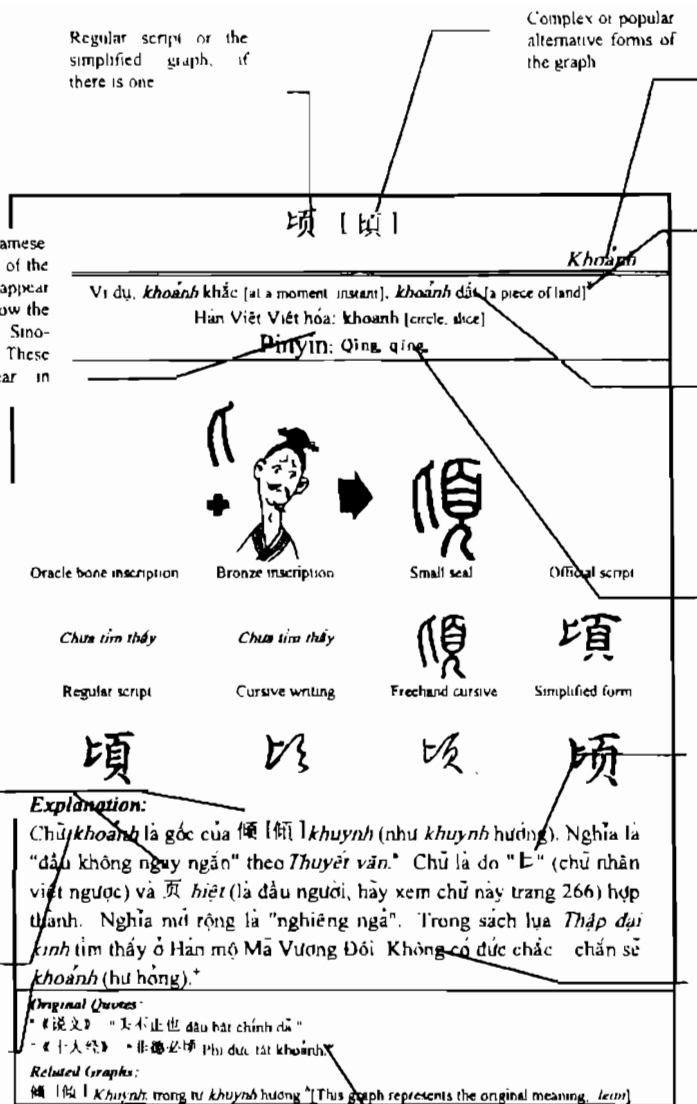 Regular script or the
simplified graph, if
there is one
Complex or popular
alternative forms of
the graph
顷 [頃]
Khoảnh
Ví dụ, khoảnh khắc [at a moment instant], khoảnh đất [a piece of land]*
Hán Việt Việt hóa: khoanh [circle, slice]
Pinyin: Qīng, qǐng
of the
appear
ow the
Sino-
These
ear in
Oracle bone inscription Bronze inscription Small seal Official script
Chưa tìm thấy Chưa tìm thấy
Regular script Cursive writing Freehand cursive Simplified form
頃 顷
Explanation:
Chữ khoảnh là gốc của 倾 [傾] khuynh (như khuynh hướng). Nghĩa là
"đầu không nguy ngắn" theo Thuyết văn.* Chữ là do "匕" (chữ nhân
viết ngược) và 页 hiệt (là đầu người, hãy xem chữ này trang 266) hợp
thành. Nghĩa mở rộng là "nghiêng ngả". Trong sách lụa Thập đại
kinh tìm thấy ở Hán mộ Mã Vương Đôi Không có đức chắc chắn sẽ
khoảnh (hư hỏng).+
Original Quotes:
*《说文》 "头不正也 đầu bất chính dã"
《十大经》 "非德必顷 Phi đức tất khoảnh."
Related Graphs:
倾 [傾] Khuynh, trong từ khuynh hướng [This graph represents the original meaning, lean]